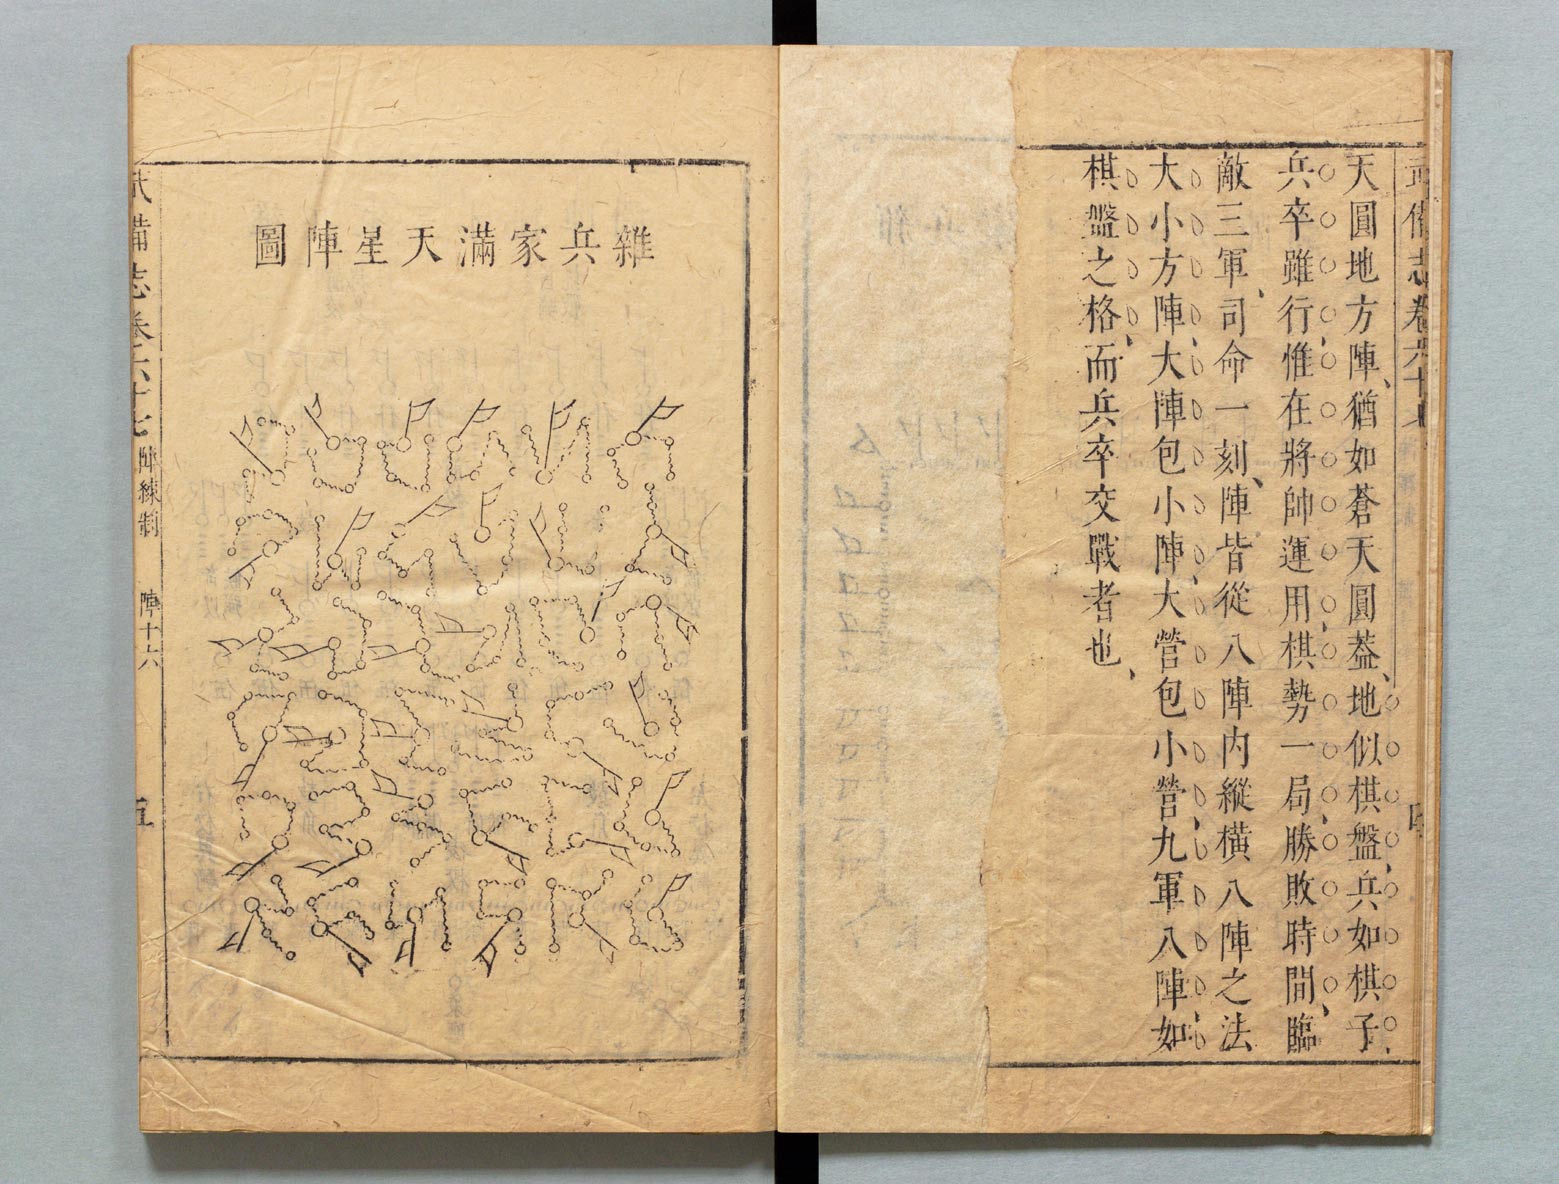 武備志卷六十七
四
天圓地方陣、猶如蒼天圓葢、地似棋盤、兵如棋子、
兵卒雖行惟在將帥運用、棋勢一局、勝敗時間、臨
敵三軍、司命一刻、陣皆從八陣内縱橫八陣之法、
大小方陣、大陣包小陣、大營包小營、九軍八陣、如
棋盤之格、而兵卒交戰者也、
雜兵家滿天星陣圖
武備志卷六十七
陣練制
陣十六
五